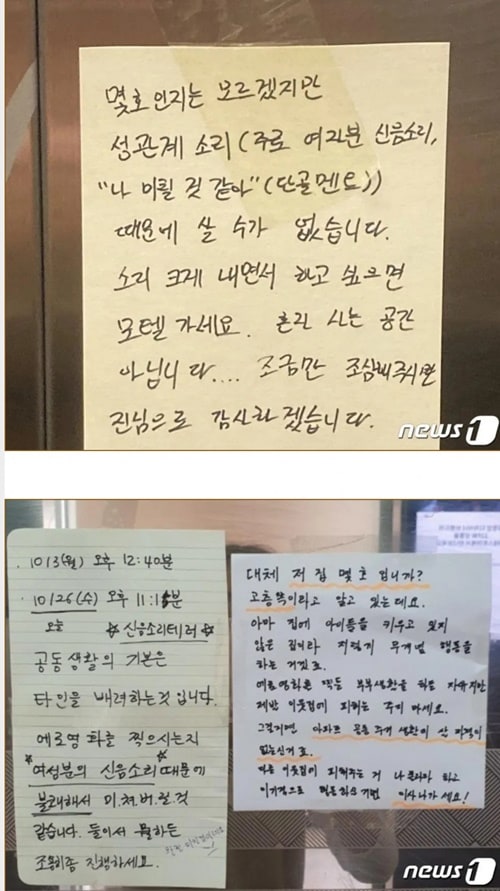 몇호인지는 모르겠지만
성관계 소리(주로 여자분 신음소리,
"나 미칠 것 같아"(단골멘트))
때문에 살 수가 없습니다.
소리 크게 내면서 하고 싶으면
모텔 가세요. 혼자 사는 공간
아닙니다.... 조금만 조심해주시면
진심으로 감사하겠습니다.
news1
10/3(월) 오후 12:40분
10/26(수) 오후 11:15분
오늘 ☆신음소리테러☆
공동생활의 기본은
타인을 배려하는것 입니다.
에로영화를 찍으시는지
여성분의 신음소리때문에
불쾌해서 미쳐버릴것
같습니다. 둘이서 뭘하든
조용히좀 진행하세요.
대체 저 집 몇호 입니까?
고층쪽이라고 알고 있는데요.
아마 집에 아이들을 키우고 있지
않은 집이라 저렇게 무개념 행동을
하는 거겠죠.
에로영화를 찍든 부부생활을 하든 자유지만
제발 이웃집에 피해는 주지 마세요.
그렇게면 아파트 공동 주거 생활이 안 파괴이
없는신거죠.
다른 이웃집이 피해주는 거 나 몰라라 하고
이기적으로 행동하실거면 이사나가세요!
news1